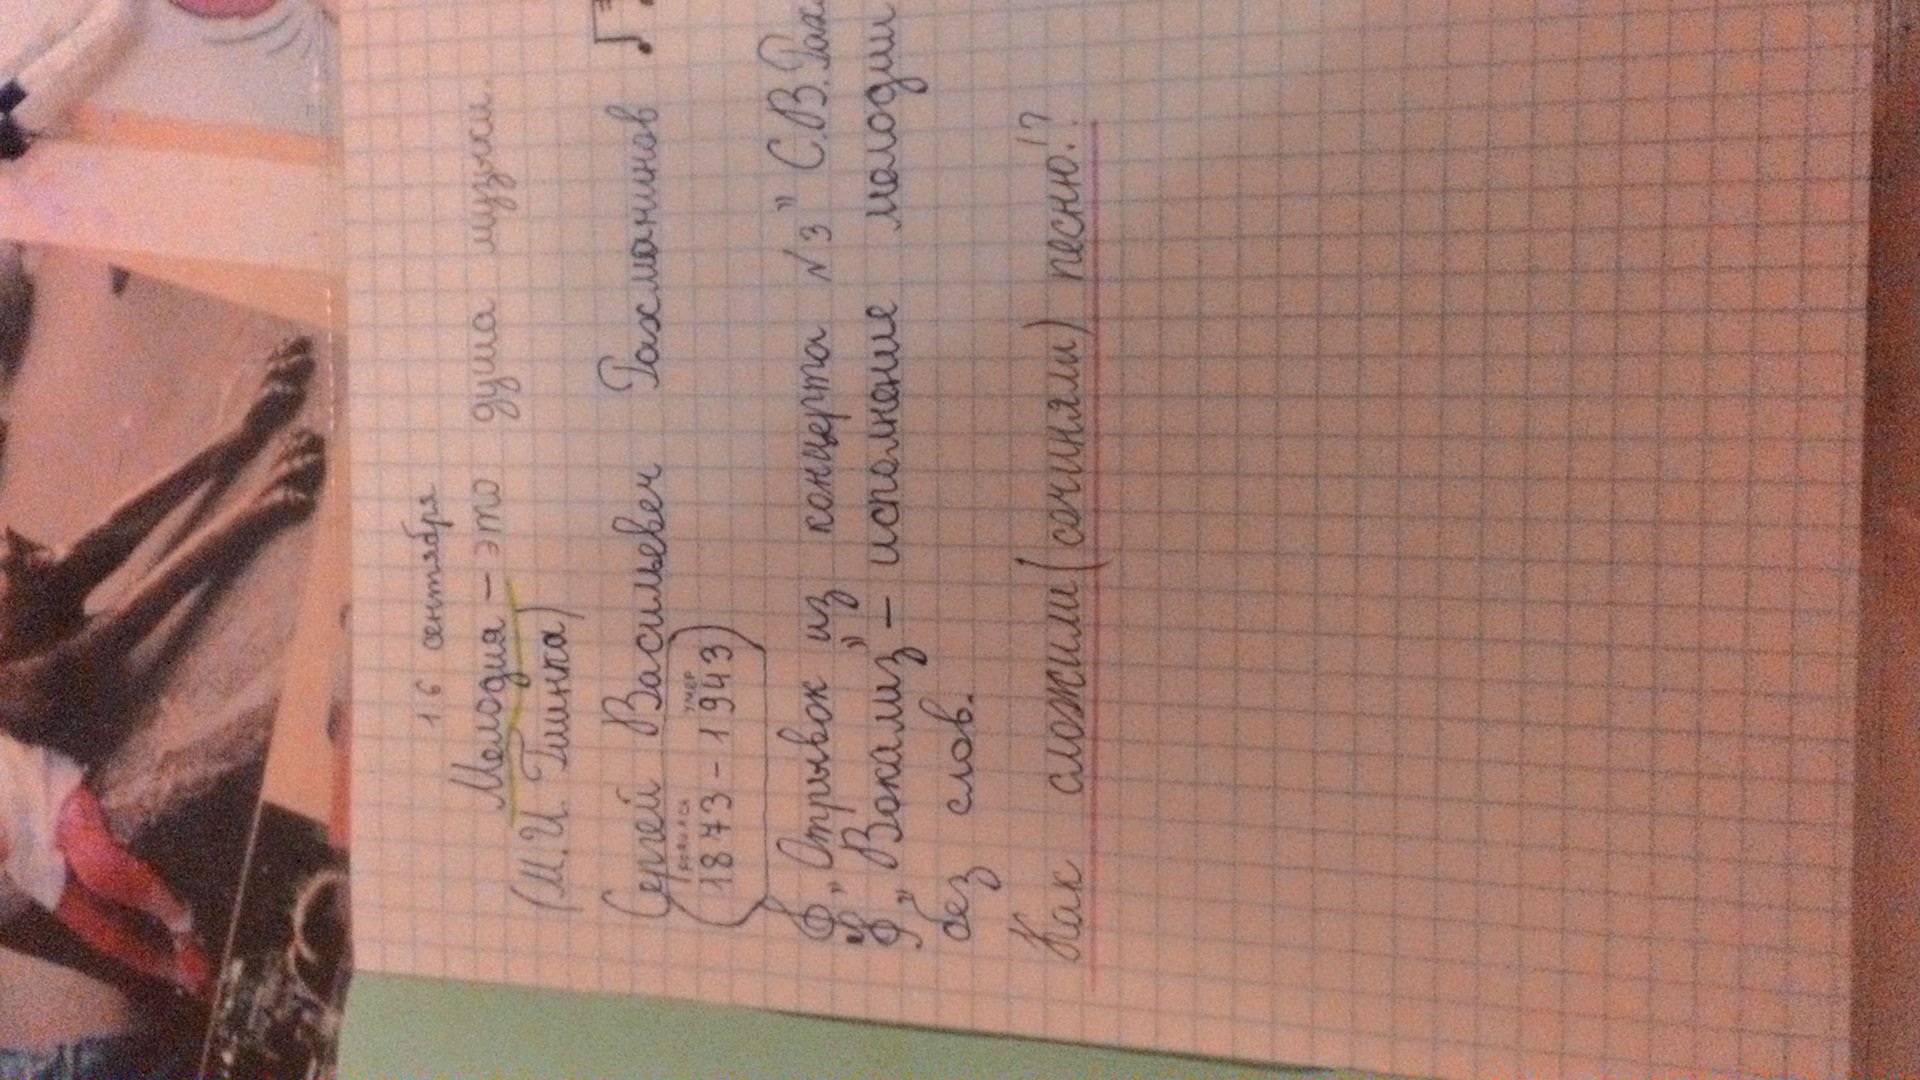 16 сентября
Мелодия – это душа музыки.
(М.И. Глинка)
Сергей Васильевеч Рахманинов
родился умер
(1873 – 1943)
„Отрывок из концерта №3" С.В.Рах
„Вокализ" – исполнение мелодии
без слов.
Как сложили (сочиняли) песню!?